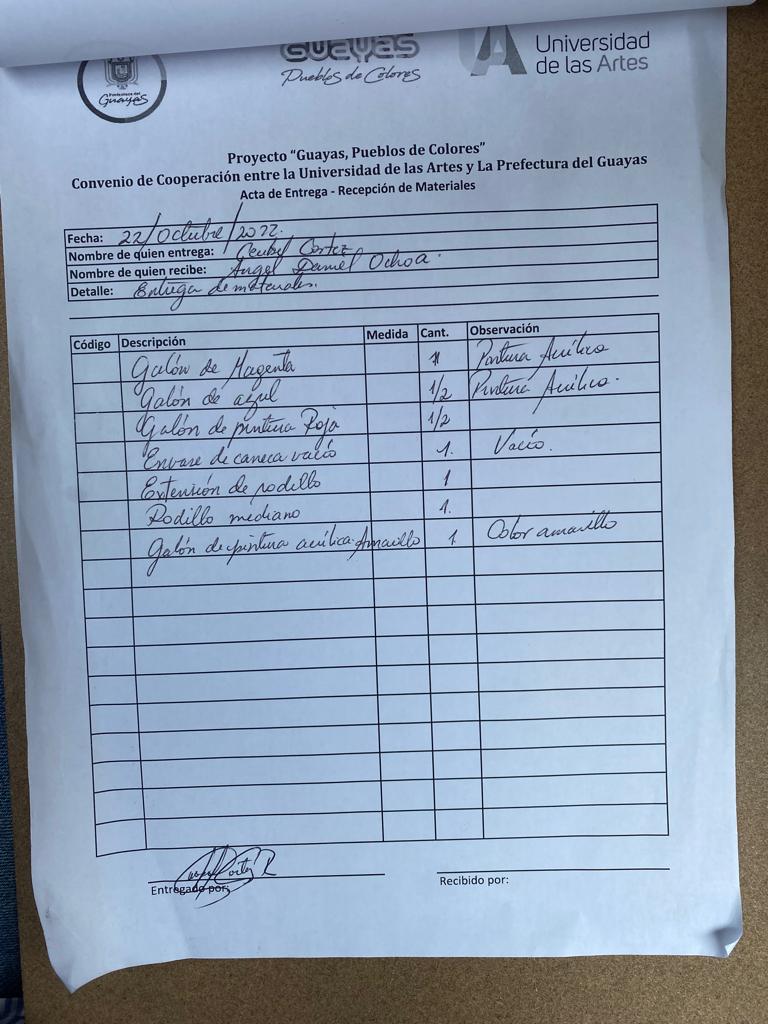 Prefectura del
Guayas
GUAYAS
Pueblos de Colores
UA Universidad
de las Artes
Proyecto “Guayas, Pueblos de Colores”
Convenio de Cooperación entre la Universidad de las Artes y La Prefectura del Guayas
Acta de Entrega - Recepción de Materiales
Fecha: 22/Octubre/2022.
Nombre de quien entrega: Cortez
Nombre de quien recibe: Angel Daniel Ochoa.
Detalle: Entrega de materiales.
Código Descripción Medida Cant. Observación
Galón de Magenta 1 Pintura Acrílica
Galón de azul 1/2 Pintura Acrílica.
Galón de pintura Roja 1/2
Envase de caneca vacío 1. Vacío.
Extensión de rodillo 1
Rodillo mediano 1.
Galón de pintura acrílica Amarillo 1 Color amarillo
Entregado por:
Recibido por: